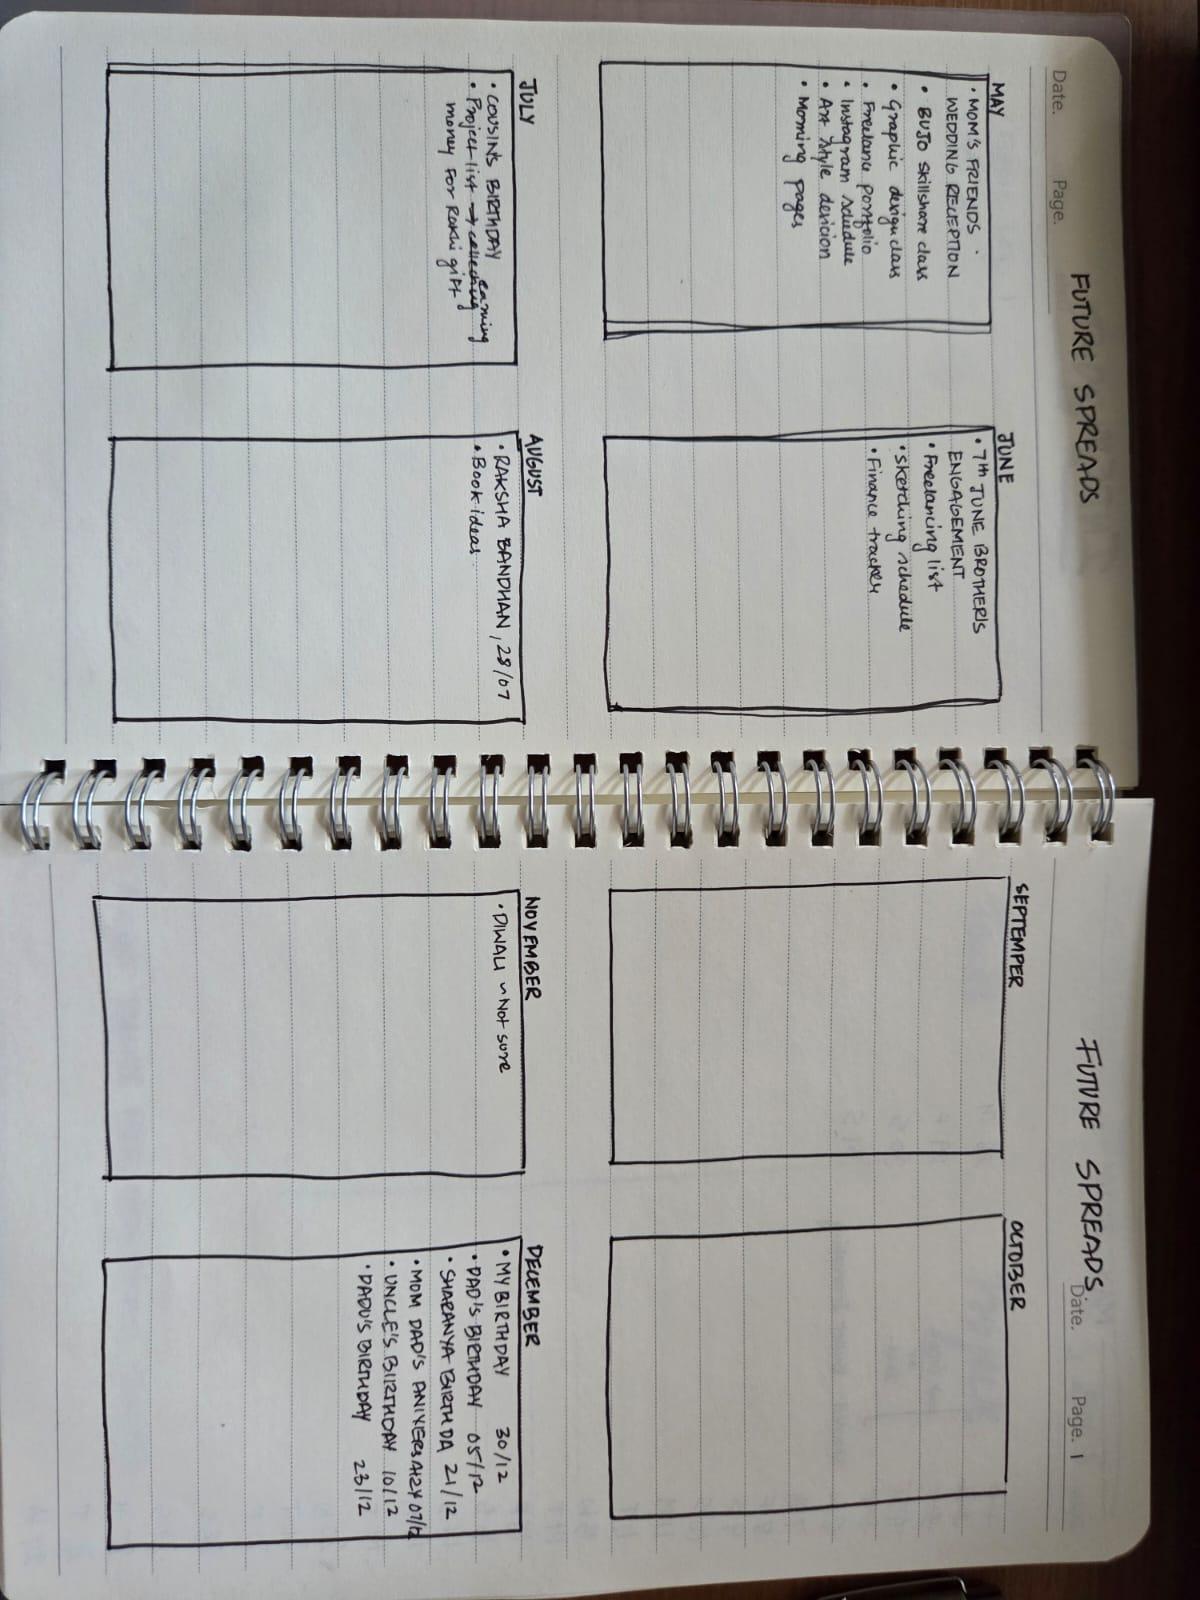 Date.
Page.
FUTURE SPREADS
MAY
• MOM'S FRIENDS
WEDDING RECEPTION
• BUJO Skillshare class
• Graphic design class
• Freelance portfolio
• Instagram schedule
• Art style devicion
• Morning pages
JUNE
• 7th JUNE BROTHER'S
ENGAGEMENT
• Freelancing list
• Sketching schedule
• Finance tracker
JULY
• COUSIN'S BIRTHDAY
• Project list → collecting earning
money for Rakhi gift
AUGUST
• RAKSHA BANDHAN, 28/07
• Book ideas
FUTURE SPREADS
Date.
Page. 1
SEPTEMPER
OCTOBER
NOVEMBER
• DIWALI ~ Not sure
DECEMBER
• MY BIRTHDAY 30/12
• DAD'S BIRTHDAY 05/12
• SHARANYA BIRTHDA 21/12
• MOM DAD'S ANIVERSARY 07/12
• UNCLE'S BIIRTHDAY 10/12
• DADU'S BIRTHDAY 23/12